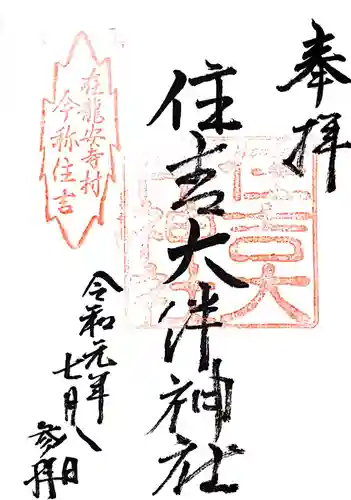 奉拝
住吉大伴神社
住吉大
伴神社
在龍安寺村
今称住吉
令和元年
七月八日
参拝